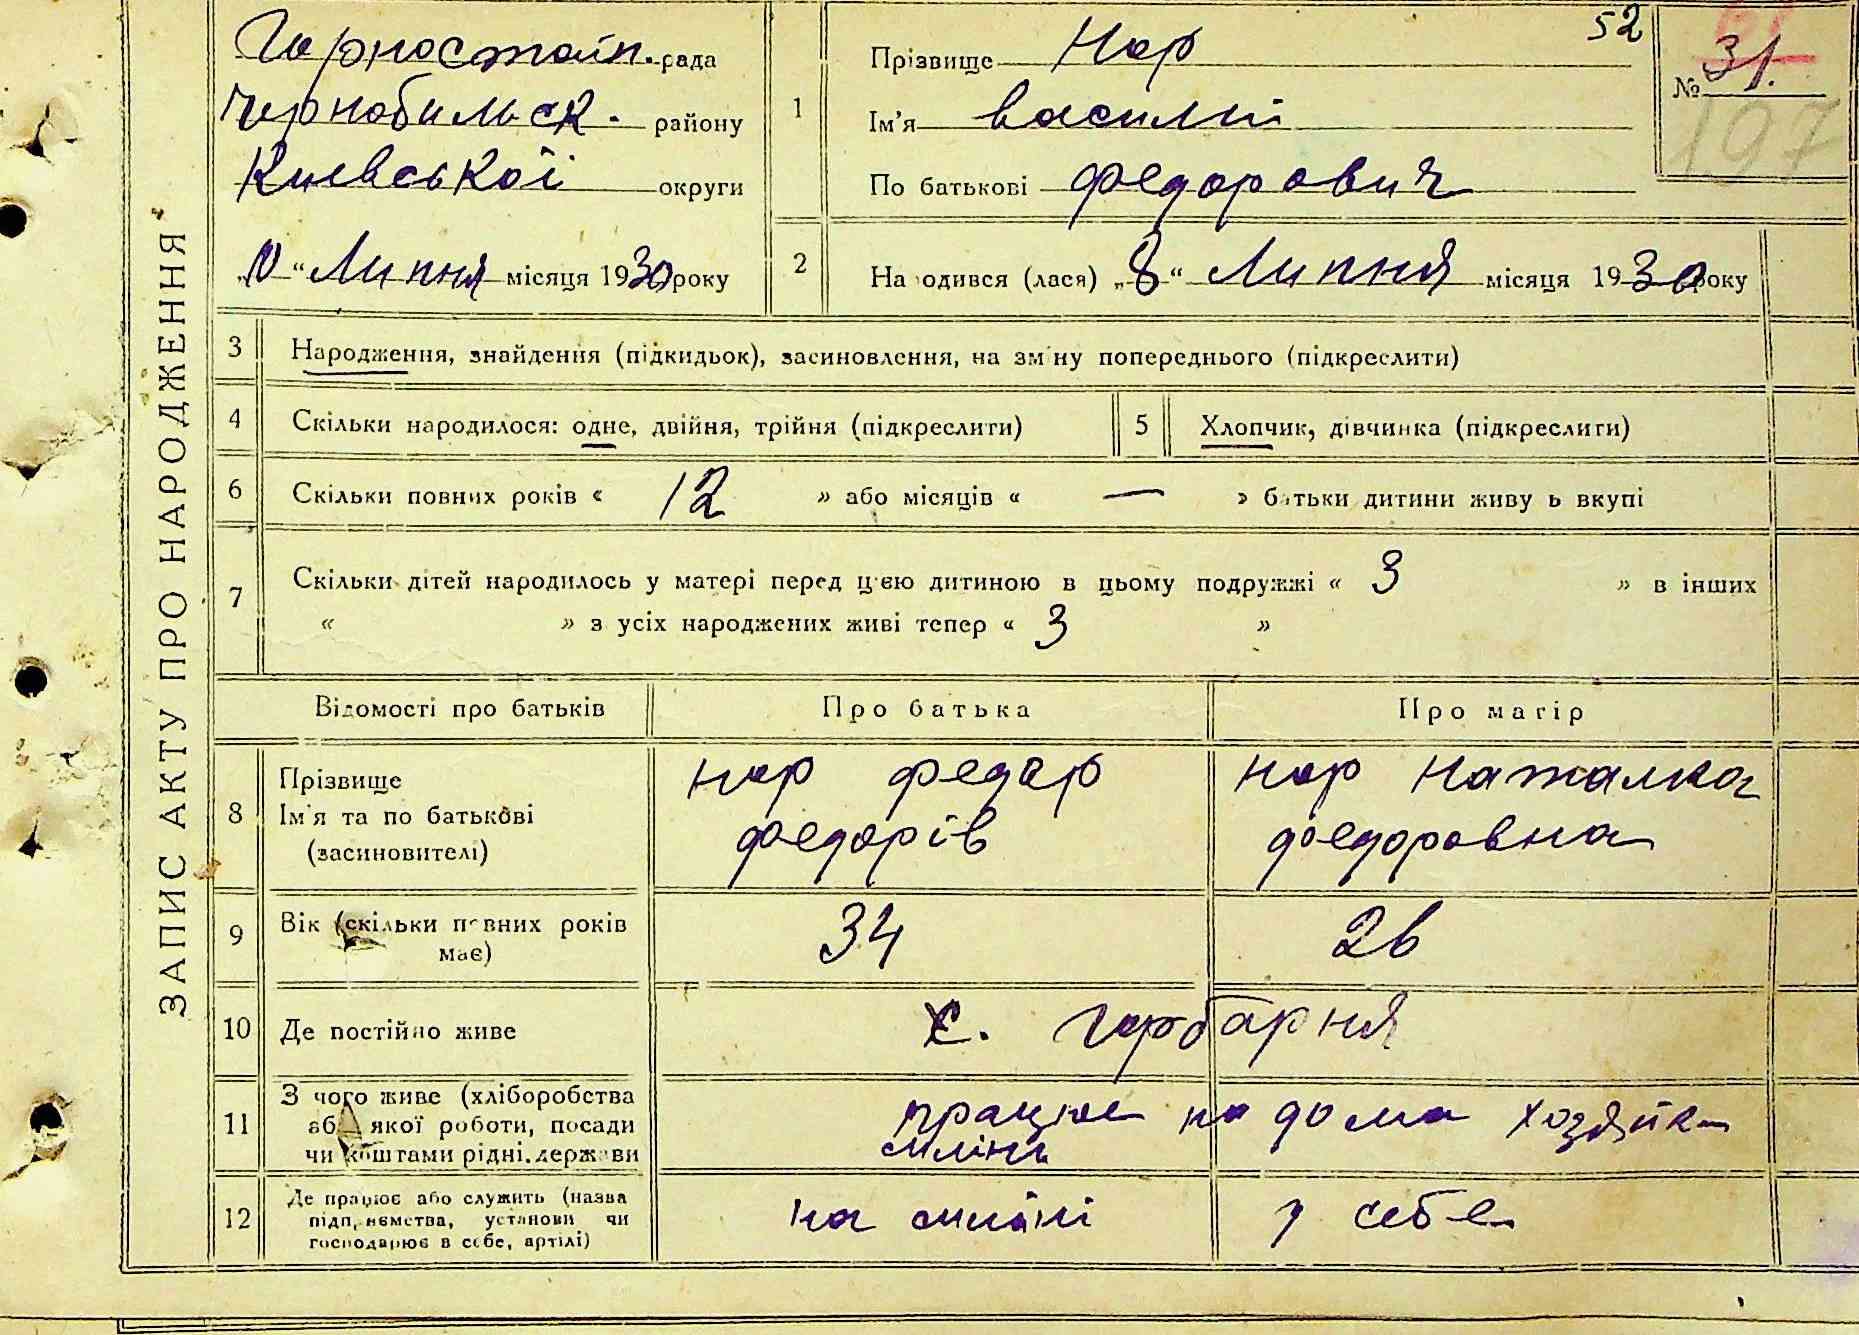 52
Горностайп. рада
Чернобильск. району
Киевської округи
„10“ Липня місяця 1930 року
1
Прізвище Нор
Ім'я Василій
По батькові Федорович
№ 31.
197
2
На одився (лася) „8“ Липня місяця 1930 року
ЗАПИС АКТУ ПРО НАРОДЖЕННЯ
3 Народження, знайдення (підкидьок), засиновлення, на зм ну попереднього (підкреслити)
4 Скільки народилося: одне, двійня, трійня (підкреслити)
5 Хлопчик, дівчинка (підкреслити)
6 Скільки повних років « 12 » або місяців « — » батьки дитини живу ь вкупі
7 Скільки дітей народилось у матері перед цією дитиною в цьому подружжі « 3 » в інших
« » з усіх народжених живі тепер « 3 »
Відомості про батьків Про батька Про матір
8 Прізвище
Ім'я та по батькові
(засиновителі)
Нор Федор
Федорів
Нор Наталка
Федоровна
9 Вік (скільки повних років
має)
34
26
10 Де постійно живе
х. Гарбарня
11 З чого живе (хліборобства
аб якої роботи, посади
чи коштами рідні, держави
працює на
млині
дома хозяйка
12 Де працює або служить (назва
підприємства, установи чи
господарює в себе, артілі)
на млині
у себе